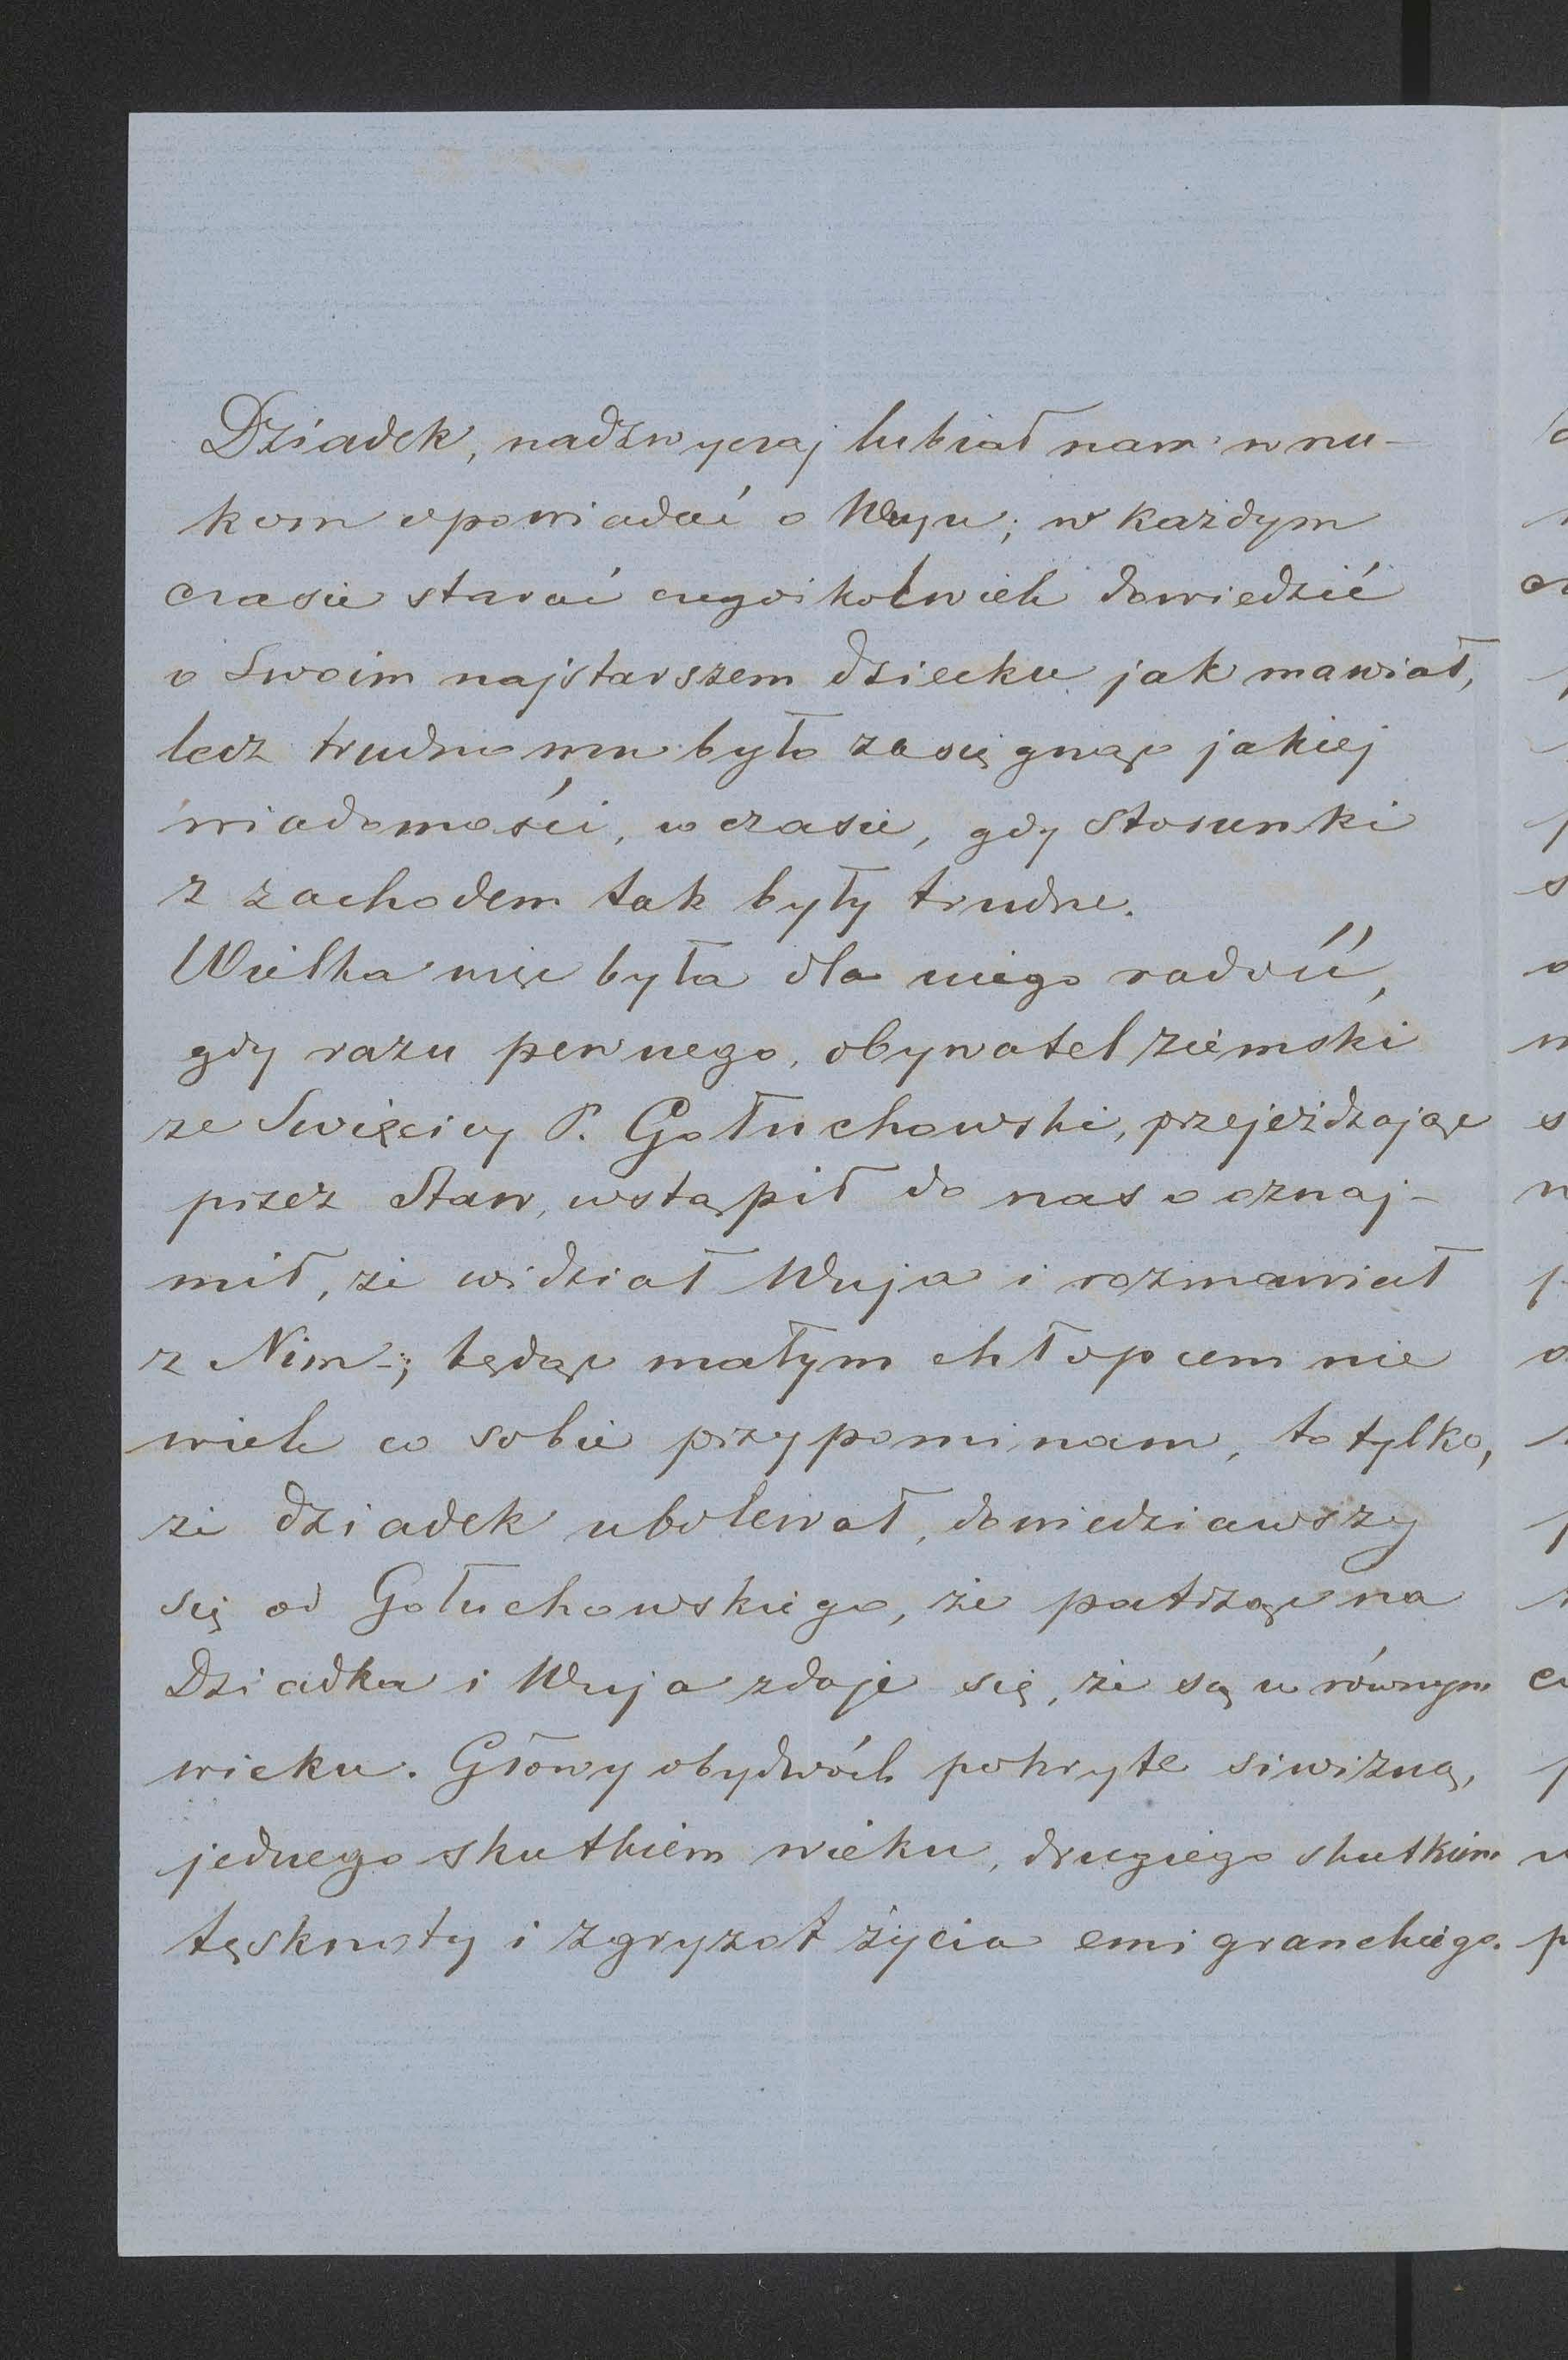 Dziadek, nadzwyczaj lubiał nam wnu-
kom opowiadać o Wuju; w każdym
czasie starać czegoikolwiek dowiedzić
o Swoim najstarszem dziecku jak mawiał,
lecz trudno mu było zasięgnąc jakiej
wiadomości, w czasie, gdy stosunki
z zachodem tak były trudne.
Wielka więc była dla niego radość,
gdy razu pewnego, obywatel ziemski
ze Swięcicy P. Gołuchowski, przejeżdzając
przez Staw, wstąpił do nas o oznaj-
mił, że widział Wuja i rozmawiał
z Nim-; będąc małym chłopcem nie
wiele co sobie przypominam, to tylko,
że dziadek ubolewał, dowiedziawszy
się od Gołuchowskiego, że patrząc na
Dziadka i Wuja zdaje się, że są w równym
wieku. Głowy obydwóch pokryte siwizną,
jednego skutkiem wieku, drugiego skutkiem
tęsknoty i zgryzot życia emigranckiego.